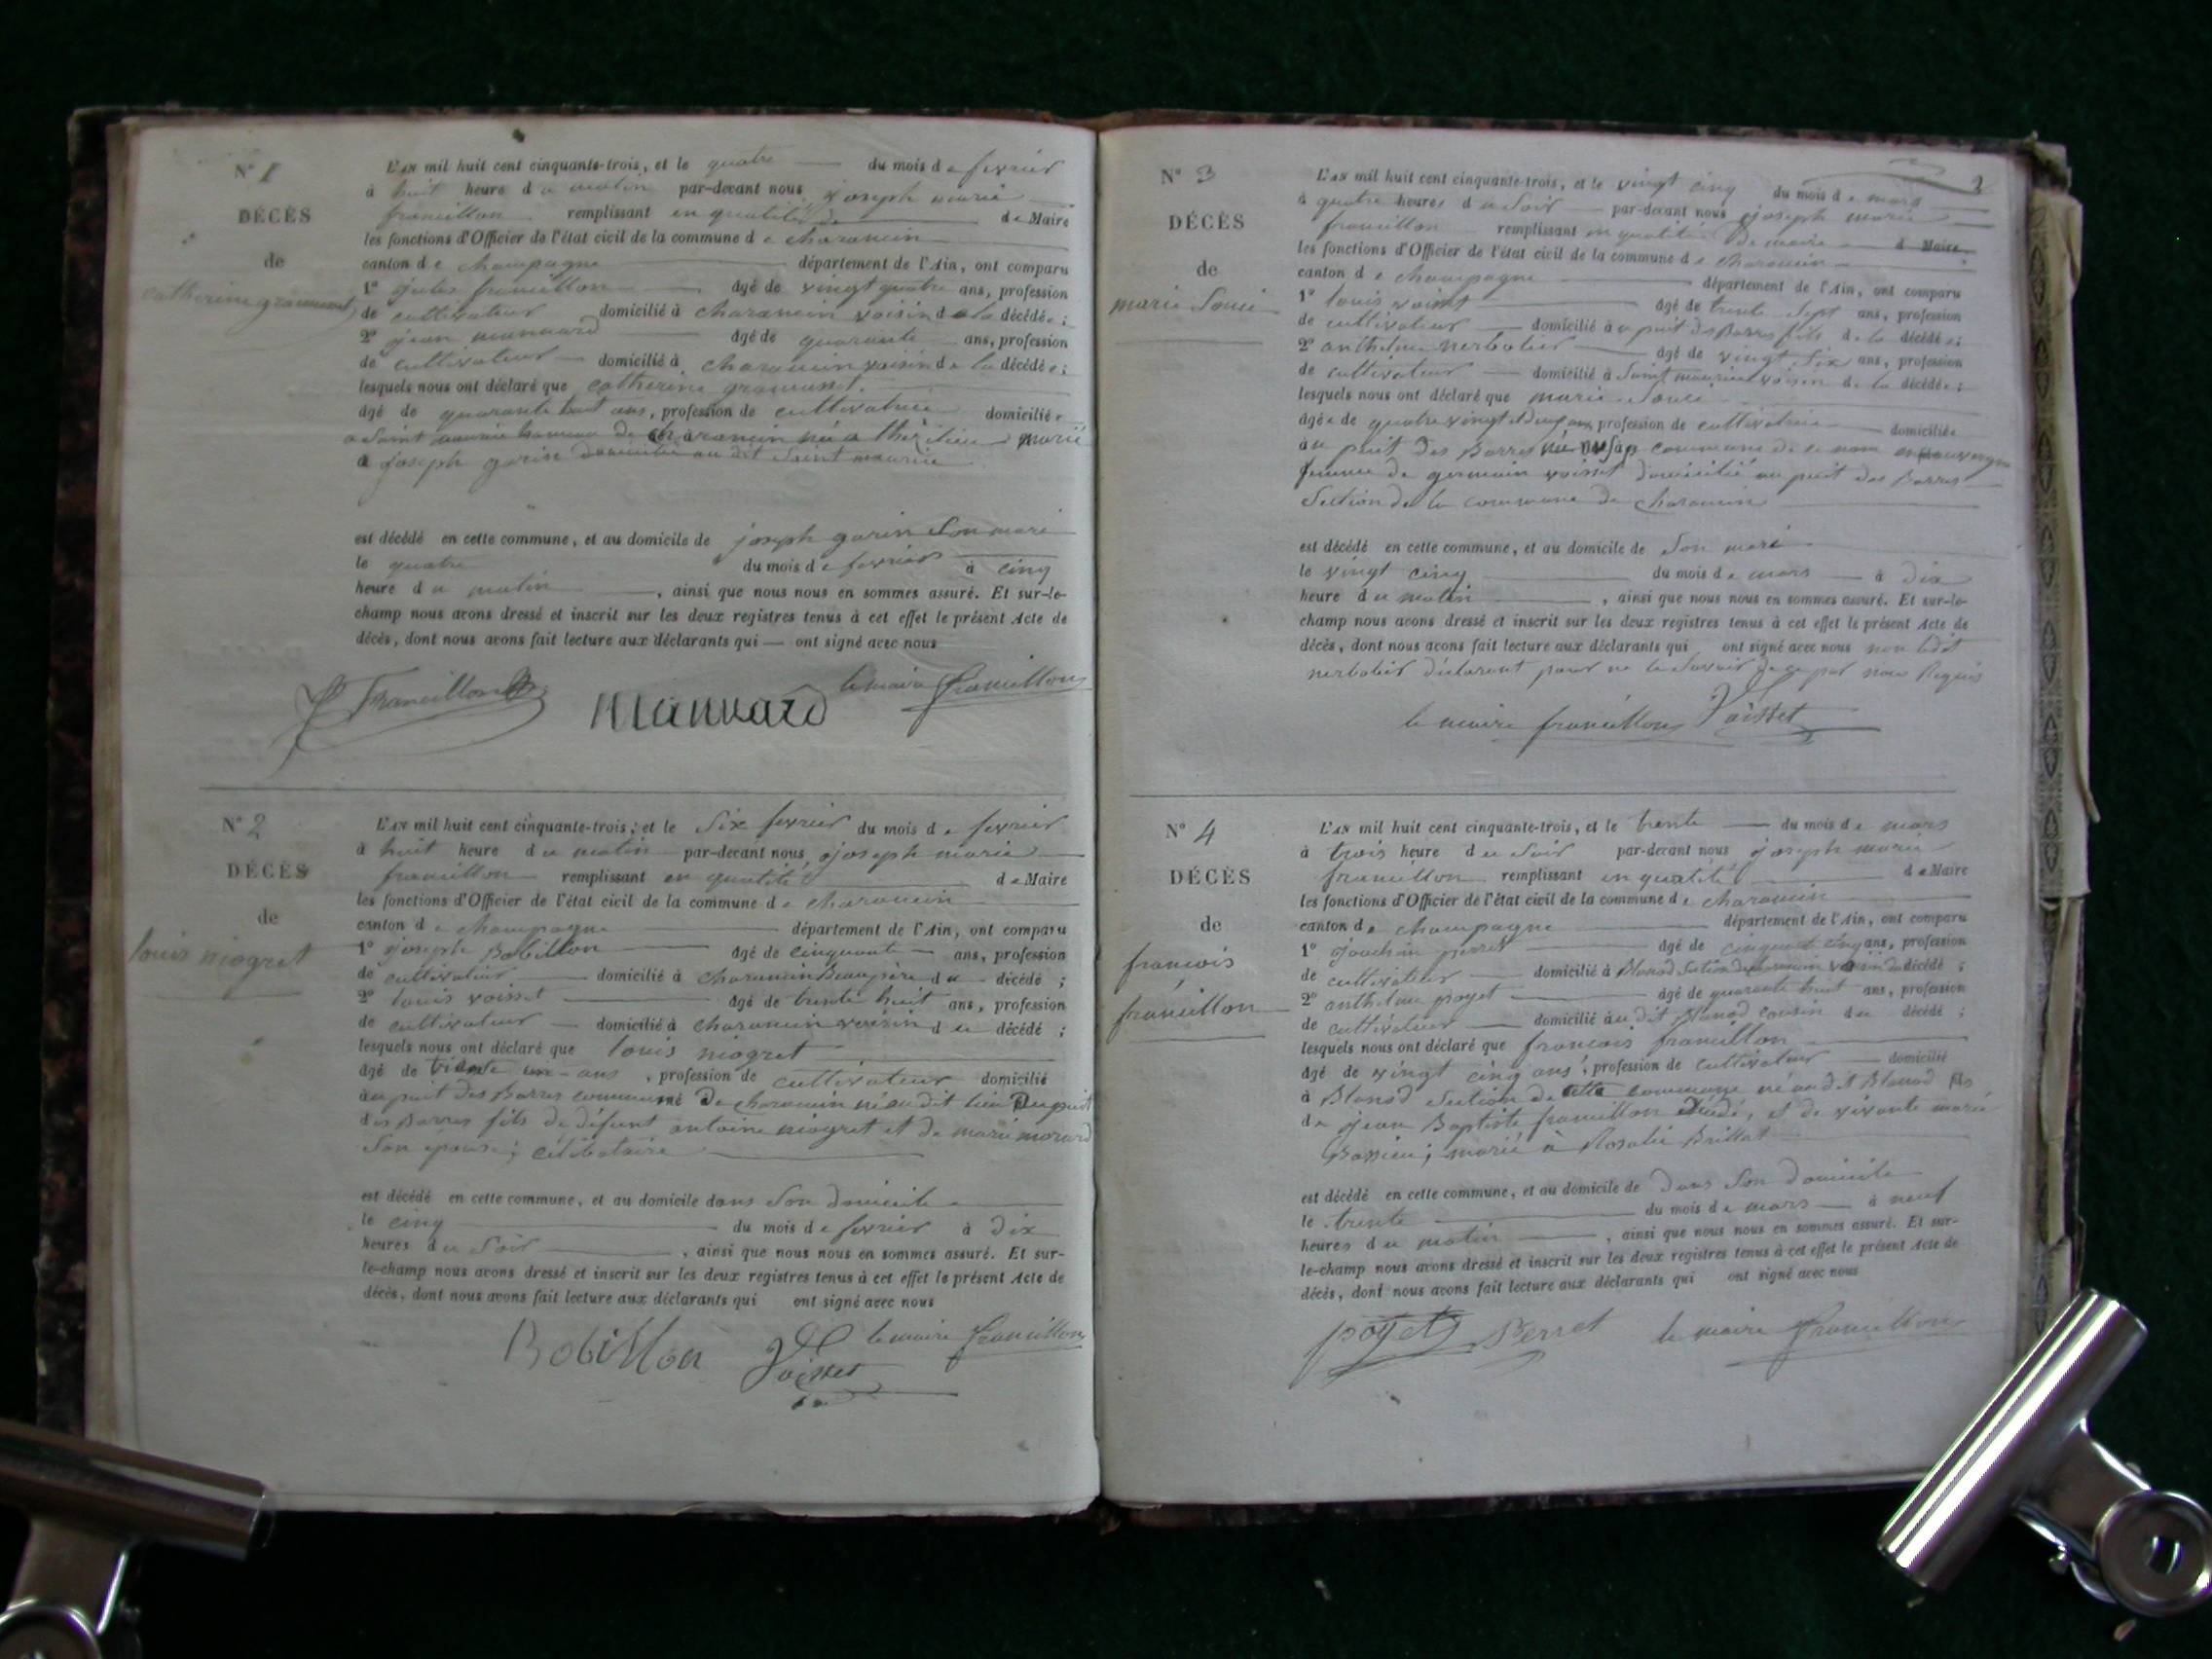 N° 1
DÉCÈS
de
catherine gramusset
L'AN mil huit cent cinquante-trois, et le quatre du mois de fevrier
à huit heure du matin par-devant nous joseph marie
francillon remplissant en qualité de Maire
les fonctions d'Officier de l'état civil de la commune de charancin
canton de champagne département de l'Ain, ont comparu
1° jules francillon âgé de vingt quatre ans, profession
de cultivateur domicilié à charancin voisin de la décédée ;
2° jean mannard âgé de quarante ans, profession
de cultivateur domicilié à charancin voisin de la décédée ;
lesquels nous ont déclaré que catherine gramusset
âgé de quarante huit ans, profession de cultivatrice domiciliée
a Saint maurice hameau de charancin née a marié
a joseph garin domicilié au dit Saint maurice
est décédé en cette commune, et au domicile de joseph garin Son mari
le quatre du mois de fevrier à cinq
heure du matin , ainsi que nous nous en sommes assuré. Et sur-le-
champ nous avons dressé et inscrit sur les deux registres tenus à cet effet le présent Acte de
décès, dont nous avons fait lecture aux déclarants qui — ont signé avec nous
J Francillon Mannard le maire francillon
N° 2
DÉCÈS
de
louis niogret
L'AN mil huit cent cinquante-trois, et le Six fevrier du mois de fevrier
à huit heure du matin par-devant nous joseph marie
francillon remplissant en qualité de Maire
les fonctions d'Officier de l'état civil de la commune de charancin
canton de champagne département de l'Ain, ont comparu
1° joseph Bobillon âgé de cinquante ans, profession
de cultivateur domicilié à charancin Beaupère du décédé ;
2° louis voisset âgé de trente huit ans, profession
de cultivateur domicilié à charancin voisin du décédé ;
lesquels nous ont déclaré que louis niogret
âgé de trente un ans , profession de cultivateur domicilié
au puit des Barres commune de charancin né au dit lieu du puit
des Barres fils de défunt antoine niogret et de marie
Son épouse ; célibataire
est décédé en cette commune, et au domicile dans Son domicile
le cinq du mois de fevrier à dix
heures du Soir , ainsi que nous nous en sommes assuré. Et sur-
le-champ nous avons dressé et inscrit sur les deux registres tenus à cet effet le présent Acte de
décès, dont nous avons fait lecture aux déclarants qui ont signé avec nous
Bobillon Voisset le maire francillon
2
N° 3
DÉCÈS
de
marie Souci
L'AN mil huit cent cinquante-trois, et le vingt cinq du mois de mars
à quatre heures du Soir par-devant nous joseph marie
francillon remplissant en qualité de maire d Maire
les fonctions d'Officier de l'état civil de la commune de charancin
canton de champagne département de l'Ain, ont comparu
1° louis voisset âgé de trente Sept ans, profession
de cultivateur domicilié à u puit des Barres fils de la décédée ;
2° anthelme nerbolier âgé de vingt Six ans, profession
de cultivateur domicilié à Saint maurice voisin de la décédée ;
lesquels nous ont déclaré que marie Souci
âgée de quatre vingt et deux ans, profession de cultivatrice domiciliée
au puit des Barres née commune de ce nom
femme de germain voisset domicilié au puit des Barres
Section de la commune de charancin
est décédé en cette commune, et au domicile de Son mari
le vingt cinq du mois de mars à dix
heure du matin , ainsi que nous nous en sommes assuré. Et sur-le-
champ nous avons dressé et inscrit sur les deux registres tenus à cet effet le présent Acte de
décès, dont nous avons fait lecture aux déclarants qui ont signé avec nous non ledit
déclarant pour ne le Savoir de ce par nous Requis
le maire francillon Voisset
N° 4
DÉCÈS
de
francois
francillon
L'AN mil huit cent cinquante-trois, et le trente du mois de mars
à trois heure du Soir par-devant nous joseph marie
francillon remplissant en qualité de Maire
les fonctions d'Officier de l'état civil de la commune de charancin
canton de champagne département de l'Ain, ont comparu
1° joachim perret âgé de cinquante cinq ans, profession
de cultivateur domicilié à Blanod Section de charancin voisin du décédé ;
2° anthelme poyet âgé de quarante huit ans, profession
de cultivateur domicilié au dit Blanod cousin du décédé ;
lesquels nous ont déclaré que francois francillon
âgé de vingt cinq ans, profession de cultivateur domicilié
à Blanod Section de cette commune né au dit Blanod fils
de jean Baptiste francillon décédé, et de vivante marie
marié à Rosalie Brillat
est décédé en cette commune, et au domicile de dans Son domicile
le trente du mois de mars à neuf
heures du matin , ainsi que nous nous en sommes assuré. Et sur-
le-champ nous avons dressé et inscrit sur les deux registres tenus à cet effet le présent Acte de
décès, dont nous avons fait lecture aux déclarants qui ont signé avec nous
poyet Perret le maire francillon